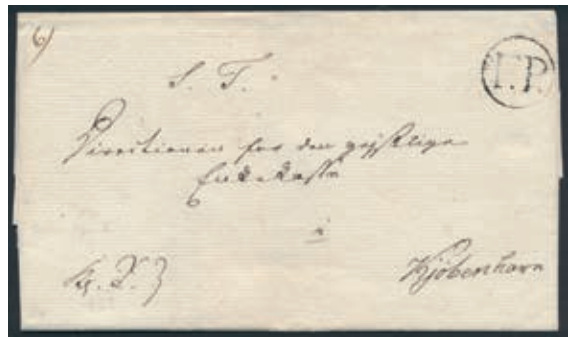 6)
F.P.
S. T.
Directionen for den geistlige
Enkekasse
i
Kjöbenhavn